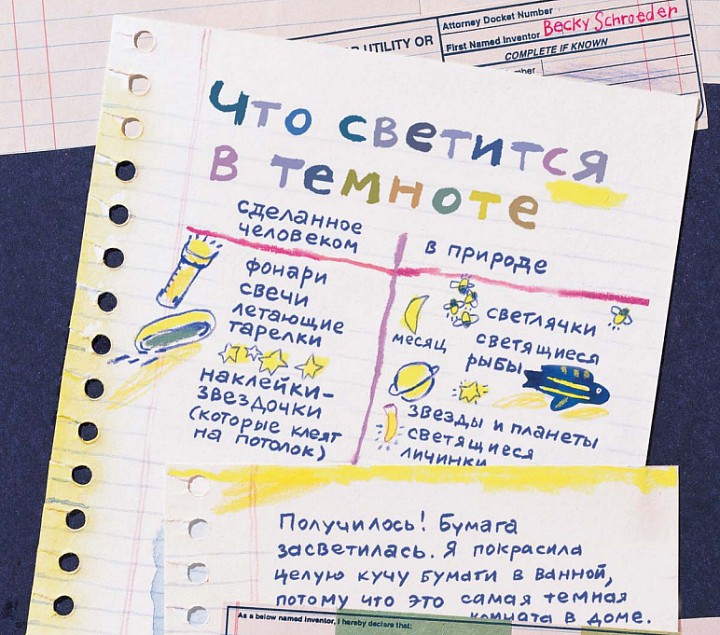 Attorney Docket Number
First Named Inventor Becky Schroeder
COMPLETE IF KNOWN
UTILITY OR
Что светится
в темноте
сделанное
человеком
фонари
свечи
летающие
тарелки
наклейки-
звездочки
(которые клеят
на потолок)
в природе
светлячки
месяц
светящиеся
рыбы
звезды и планеты
светящиеся
личинки
Получилось! Бумага
засветилась. Я покрасила
целую кучу бумаги в ванной,
потому что это самая темная
комната в доме.
As a below named inventor, I hereby declare that: